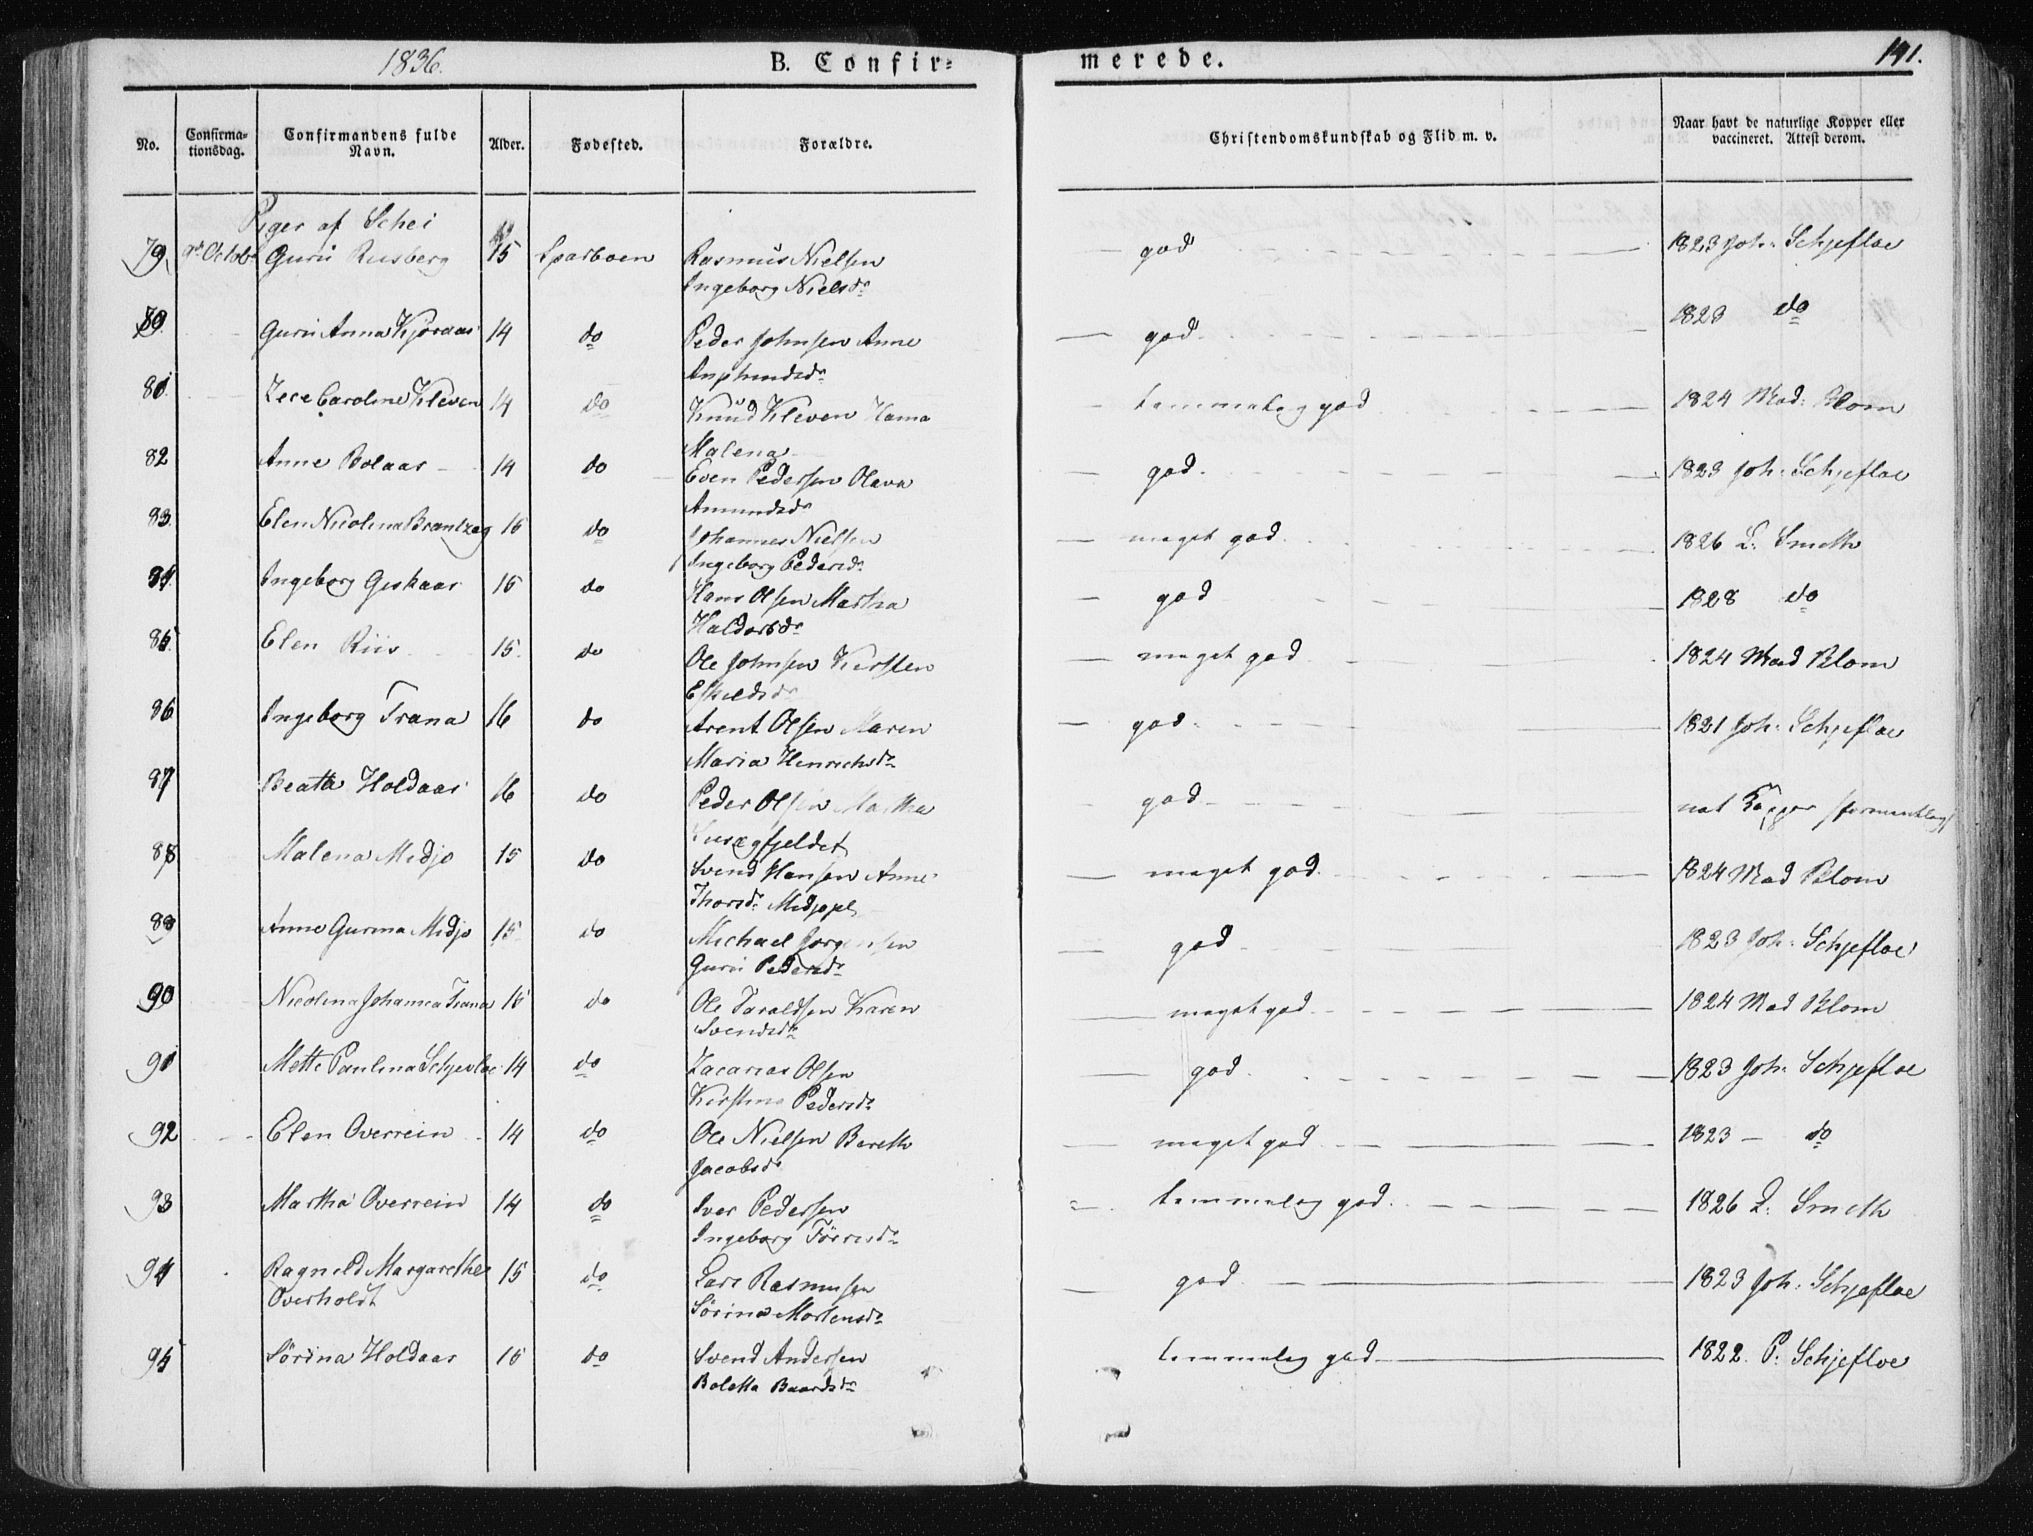 1836.
B. Confirmerede.
141.
No.
Confirmationsdag.
Confirmandens fulde Navn.
Alder.
Fødested.
Forældre.
Christendomskundskab og Flid m. v.
Naar havt de naturlige Kopper eller vaccineret. Attest derom.
Piger af Schei
79 9de Octobr Guru Rusberg 15 Sparboen Rasmus Nielsen — god 1823 Joh: Schjefloe
Ingeborg Nielsdr
80 Guru Anna Kjøraas 14 do Peder Johnsen Anne — god. 1823 do
Amundsdr
81 Caroline Kleven 14 do Knud Kleven Hama — temmelig god 1824 Mad: Blom
Malena
82 Anne Bolaas 14 do Even Pedersen Olava — god. 1823 Joh: Schjefloe
Amundsdr
83 Elen Nicolina Brantzeg 16 do Johannes Nielsen — meget god. 1826 L: Smeth
Ingeborg Pedersdr
84 Ingeborg Giskaas 15 do Hans Olsen Martha — god 1828 do
Haldorsdr
85 Elen Riis 15. do Ole Johnsen Kirsten — meget god 1824 Mad Blom
Eskildsdr
86 Ingeborg Trana 16 do Arent Olsen Maren — god. 1821 Joh: Schjefloe
Maria Henrichsdr
87 Beatha Holdaas 16 do Peder Olsen Martha — god nat Kopper
88 Malena Midjo 15 do Svend Hansen Anne — meget god. 1824 Mad Blom
Thorsdr
89 Anne Gurina Midjo 15 do Michael Jørgensen — god 1823 Joh: Schjefloe
Guru Pedersdr
90 Nicolina Johanna Trana 15 do Ole Taraldsen Karen — meget god 1824 Mad Blom
Svendsdr
91 Mette Paulina Schjevloe 14 do Zacarias Olsen — god. 1823 Joh: Schjefloe
Kirstina Pedersdr
92 Elen Overrein 14 do Ole Nielsen Bereth — meget god 1823 — do
Jacobsdr
93 Martha Overrein 14 do Iver Pedersen temmelig god. 1826 L: Smeth
Ingeborg Tørrisdr
94 Ragnild Margarethe 15 do Lars Rasmusen — god 1823 Joh: Schjefloe
Overholdt Sørina Mortensdr
95 Sørina Holdaas 15 do Svend Andersen temmelig god 1822. P: Schjefloe
Boletta Baardsdr